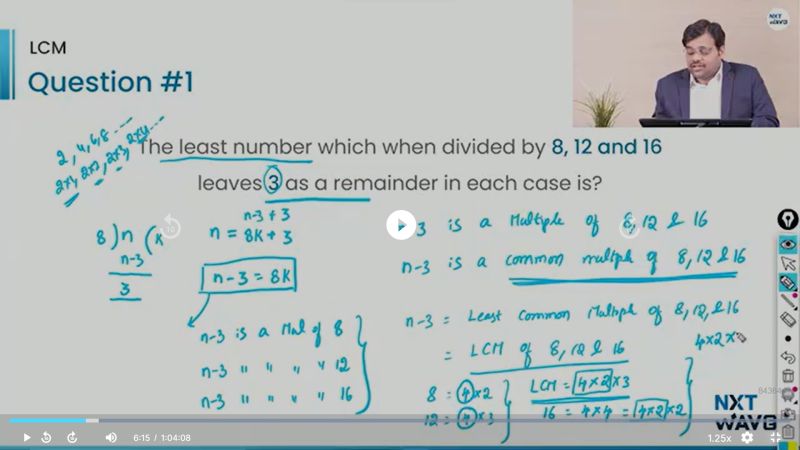 NXT
WAVE
LCM
Question #1
The least number which when divided by 8, 12 and 16
leaves 3 as a remainder in each case is?
2, 4, 6, 8 ---
2x1, 2x2, 2x3, 2x4 ---
8) n (K
n-3
3
n-3 + 3
n = 8K + 3
n-3 = 8K
n-3 is a Mul of 8
n-3 " " " " 12
n-3 " " " " 16
3 is a Multiple of 8, 12 & 16
n-3 is a common multiple of 8, 12 & 16
n-3 = Least Common Multiple of 8, 12, & 16
= LCM of 8, 12 & 16
4x2x
8 = 4x2
12 = 4x3
LCM = 4x2x3
16 = 4x4 = 4x2x2
NXT
WAVE
6:15 / 1:04:08
1.25x